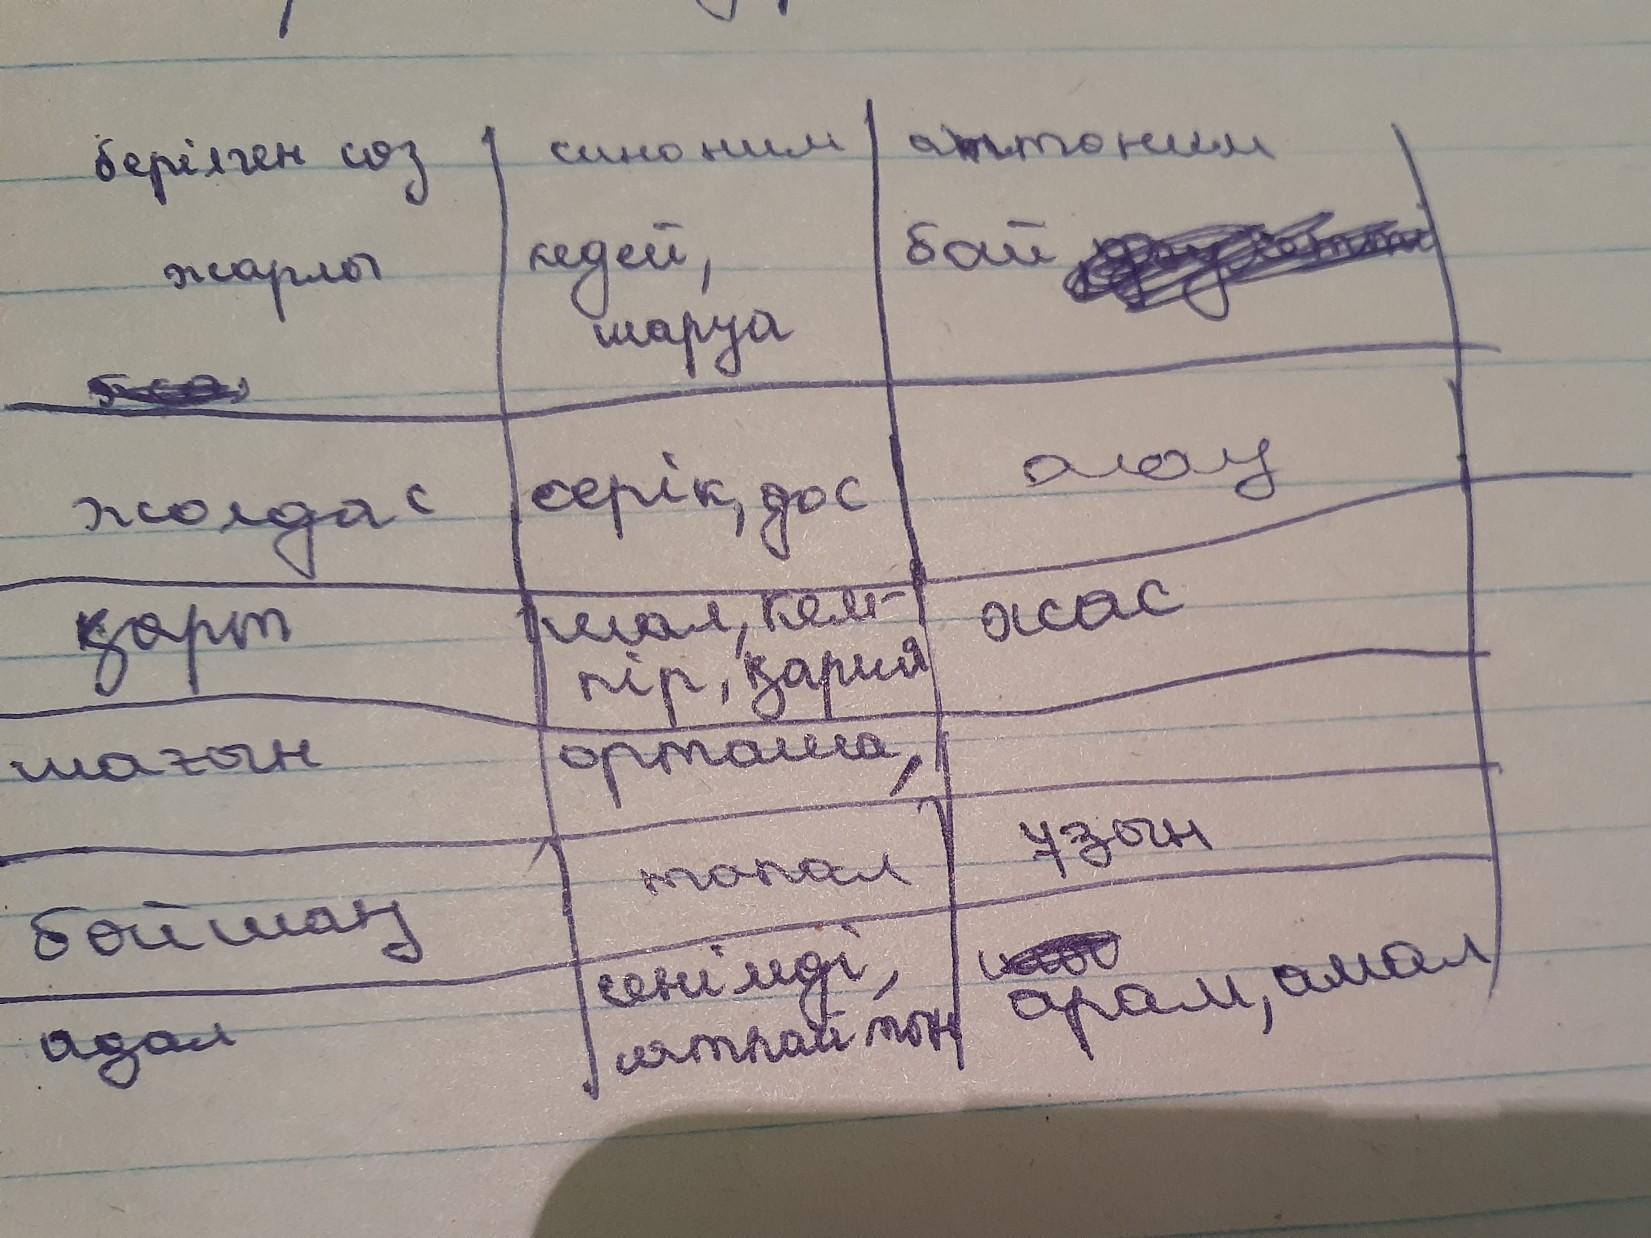 берілген сөз синоним антоним
жарлы кедей, бай
шаруа
жолдас серік, дос
қарт шал, кем- жас
пір, қария
шағын орташа,
бойшаң тапал ұзын
адал сенімді, арам, амал